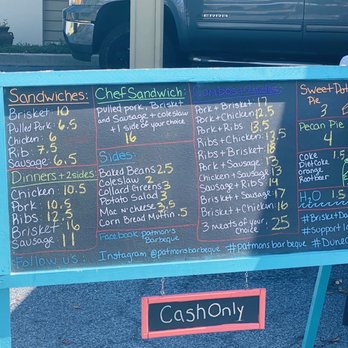 Sandwiches:
Brisket: 10
Pulled Pork: 6.5
Chicken: 6
Rib: 7.5
Sausage: 6.5
Dinners + 2 sides
Chicken: 10.5
Pork: 10.5
Ribs: 12.5
Brisket: 16
Sausage 11
Follow us:
Chef Sandwich:
pulled pork, Brisket
and Sausage + coleslaw
+ 1 side of your choice
16
Sides:
Baked Beans 2.5
Coleslaw 2
Collard Greens 3
Potato Salad 3
Mac n cheese 3.5
Corn Bread Muffin .5
Facebook: patmon's
barbeque
Instagram @patmonsbarbeque
Combos + 2 sides
Pork + Brisket 17
Pork + Chicken 12
Pork + Ribs 13.5
Ribs + Chicken: 13.5
Ribs + Brisket: 18
Pork + Sausage 13
Chicken + Sausage 13
Sausage + Ribs 14
Brisket + Sausage 17
Brisket + Chicken 16
3 meats of your choice: 25
#patmonsbarbeque
Sweet Potato
Pie
3
Pecan Pie
4
Coke
Diet Coke
orange
Root Beer
H2O 1.5
#Brisket
#Support
CashOnly